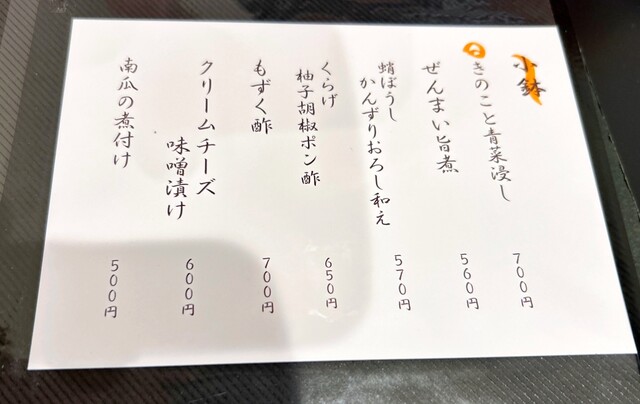 小鉢
きのこと青菜浸し
700円
ぜんまい旨煮
560円
蛸ぼうし
かんずりおろし和え
570円
くらげ
柚子胡椒ポン酢
650円
もずく酢
700円
クリームチーズ
味噌漬け
600円
南瓜の煮付け
500円